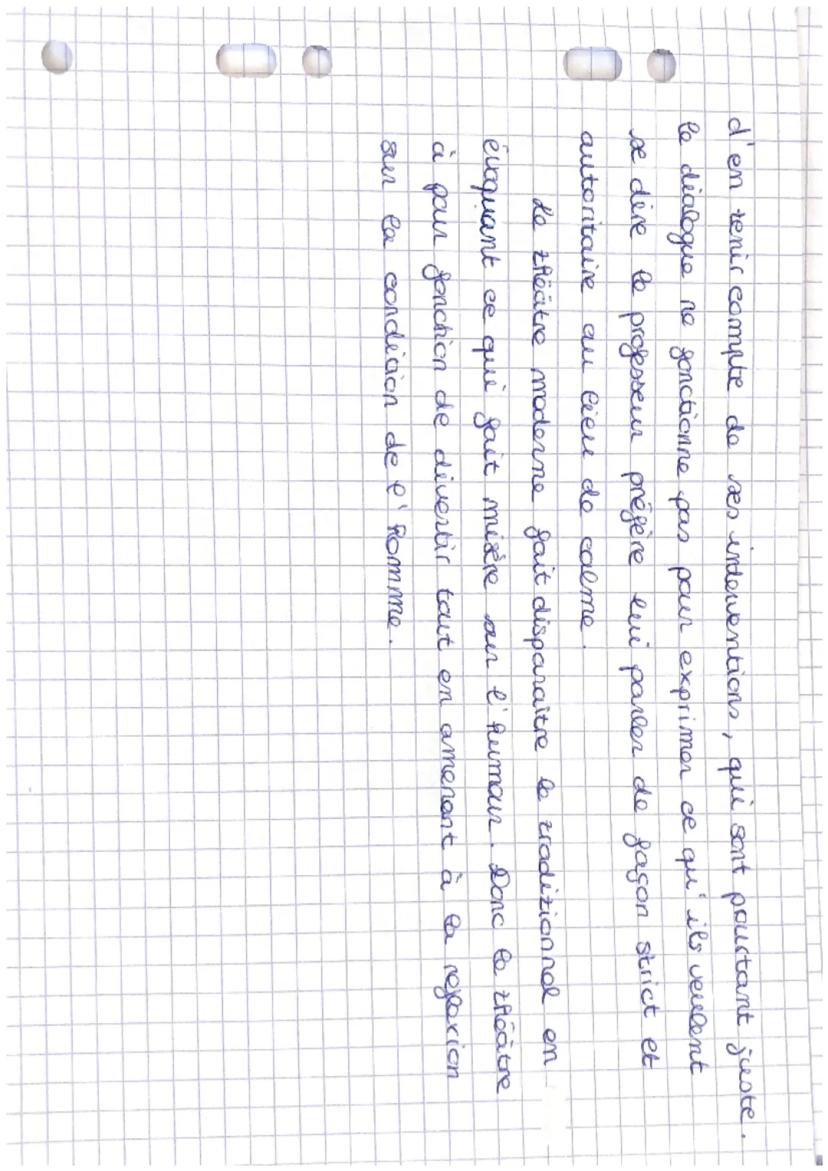 d'en tenir compte de ses interventions, qui sont pourtant juste.
le dialogue ne fonctionne pas pour exprimer ce qu'ils veulent
se dire le professeur préfère lui parler de façon strict et
autoritaire au lieu de calme.
Le théâtre moderne fait disparaître le tradizionnel en
évoquant ce qui fait misère sur l'humour. Donc le théâtre
à pour fonction de divertir tout en amenant à la reflexion
sur la condition de l'Homme.